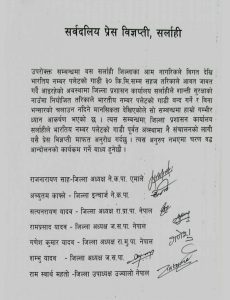 सर्वदलिय प्रेस विज्ञप्ती, सर्लाही
उपरोक्त सम्बन्धमा यस सर्लाही जिल्लाका आम नागरिकले विगत देखि
भारतीय नम्बर प्लेटको गाडी ३० कि.मि.सम्म सहज तरिकाले आवत जावत
गर्दै आइरहेको अवस्थामा जिल्ला प्रशासन कार्यालय सर्लाहीले शान्ती सुरक्षाको
नाउँमा नियोजित तरिकाले भारतीय नम्बर प्लेटको गाडी बन्द गर्न र बिना
भन्सारको चलाउन नदिने मानसिकता देखिएकोले सो सम्बन्धमा हाम्रो गम्भीर
ध्यान आकर्षण भएको छ । त्यस सम्बन्धमा जिल्ला प्रशासन कार्यालय
सर्लाहीले भारतिय नम्बर प्लेटको गाडी पूर्वत अवस्थामा नै संचालनको लागी
यसै प्रेस विज्ञप्ती मार्फत अनुरोध गर्दछु । त्यस अनुरुप नभएमा चरण बद्ध
आन्दोलनको कार्यक्रम गर्न बाध्य हुनेछौ ।
राजनारायण साह-जिल्ला अध्यक्ष ने.क.पा. एमाले
अच्युतम काफ्ले - जिल्ला इन्चार्ज ने.क.पा.
सत्यनारायण यादव - जिल्ला अध्यक्ष रा.प्रा.पा. नेपाल
रामप्रसाद यादव - जिल्ला अध्यक्ष ज.स.पा. नेपाल
गणेश कुमार यादव - जिल्ला अध्यक्ष रा.मु.पा. नेपाल
शम्भु यादव - जिल्ला अध्यक्ष ज.स.पा.
राम स्वार्थ महतो - जिल्ला उपाध्यक्ष उज्यालो नेपाल